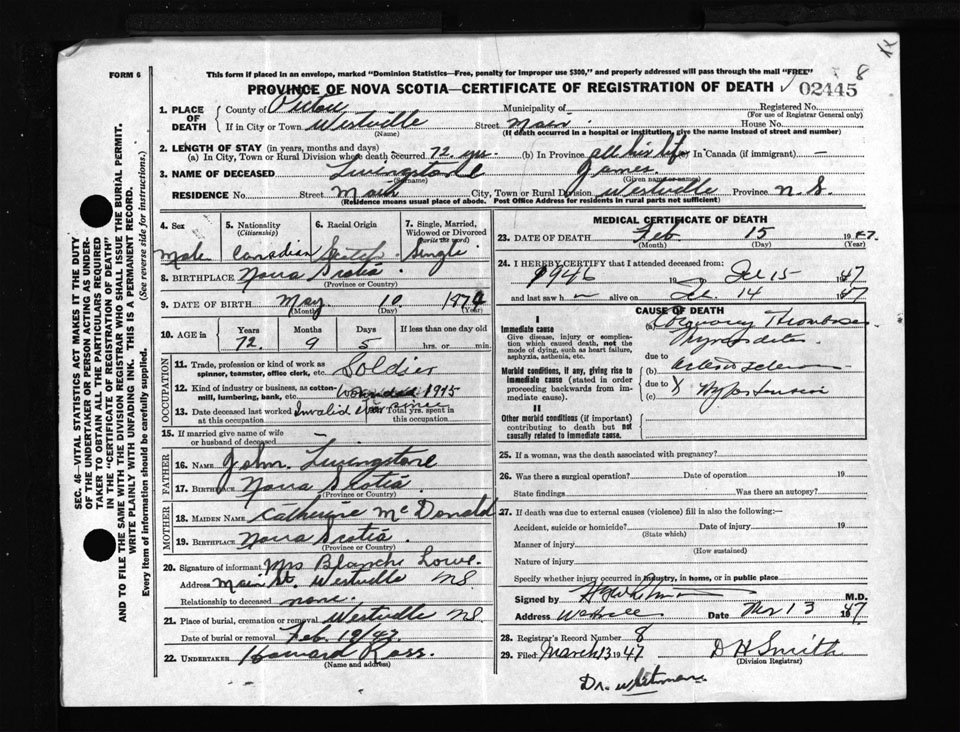 FORM 6
This form if placed in an envelope, marked "Dominion Statistics—Free, penalty for improper use $300," and properly addressed will pass through the mail "FREE"
8
PROVINCE OF NOVA SCOTIA—CERTIFICATE OF REGISTRATION OF DEATH
02445
1. PLACE OF DEATH
County of Pictou
Municipality of
Registered No.
(For use of Registrar General only)
If in City or Town Westville
(Name)
Street Main
House No.
(If death occurred in a hospital or institution, give the name instead of street and number)
2. LENGTH OF STAY (in years, months and days)
(a) In City, Town or Rural Division where death occurred 72 yrs. (b) In Province all his life In Canada (if immigrant) —
3. NAME OF DECEASED Livingstone
(Surname)
James
(Given name or names)
RESIDENCE No. Street Main City, Town or Rural Division Westville Province N.S.
(Residence means usual place of abode. Post Office Address for residents in rural parts not sufficient)
4. Sex
Male
5. Nationality
(Citizenship)
Canadian
6. Racial Origin
7. Single, Married,
Widowed or Divorced
(write the word)
Single
8. BIRTHPLACE Nova Scotia
(Province or Country)
9. DATE OF BIRTH May 10 1874
(Month) (Day) (Year)
10. AGE in
Years Months Days If less than one day old
72 9 5 hrs. or min.
OCCUPATION
11. Trade, profession or kind of work as
spinner, teamster, office clerk, etc. Soldier
12. Kind of industry or business, as cotton-
mill, lumbering, bank, etc. Wounded 1915
13. Date deceased last worked Invalid since Total yrs. spent in
at this occupation this occupation
15. If married give name of wife
or husband of deceased
FATHER
16. NAME John Livingstone
17. BIRTHPLACE Nova Scotia
(Province or Country)
MOTHER
18. MAIDEN NAME Catherine McDonald
19. BIRTHPLACE Nova Scotia
(Province or Country)
20. Signature of informant Mrs Blanche Lowe
Address Main St. Westville NS
Relationship to deceased none
21. Place of burial, cremation or removal Westville NS
Date of burial or removal Feb. 19/47
22. UNDERTAKER Howard Ross.
(Name and address)
MEDICAL CERTIFICATE OF DEATH
23. DATE OF DEATH Feb 15 1947
(Month) (Day) (Year)
24. I HEREBY CERTIFY that I attended deceased from:
1946 19 to Feb 15 1947
and last saw h alive on Feb. 14 1947
CAUSE OF DEATH
I
Immediate cause
Give disease, injury or complication which caused death, not the mode of dying, such as heart failure, asphyxia, asthenia, etc.
(a) Coronary Thrombosis
Myocarditis
due to
Morbid conditions, if any, giving rise to immediate cause (stated in order proceeding backwards from immediate cause).
(b) Arteriosclerosis
due to
(c) Hypertension
II
Other morbid conditions (if important) contributing to death but not causally related to immediate cause.
25. If a woman, was the death associated with pregnancy?
26. Was there a surgical operation? Date of operation 19
State findings Was there an autopsy?
27. If death was due to external causes (violence) fill in also the following:—
Accident, suicide or homicide? Date of injury 19
(State which)
Manner of injury
(How sustained)
Nature of injury
Specify whether injury occurred in industry, in home, or in public place
Signed by M.D.
Address Date Mar 13 1947
28. Registrar's Record Number 8
29. Filed March 13 1947 D H Smith
(Division Registrar)
Dr. Whitman
SEC. 46—VITAL STATISTICS ACT MAKES IT THE DUTY
OF THE UNDERTAKER OR PERSON ACTING AS UNDER-
TAKER TO OBTAIN ALL THE PARTICULARS REQUIRED
IN THE "CERTIFICATE OF REGISTRATION OF DEATH"
AND TO FILE THE SAME WITH THE DIVISION REGISTRAR WHO SHALL ISSUE THE BURIAL PERMIT.
WRITE PLAINLY WITH UNFADING INK. THIS IS A PERMANENT RECORD.
Every item of information should be carefully supplied. (See reverse side for instructions.)